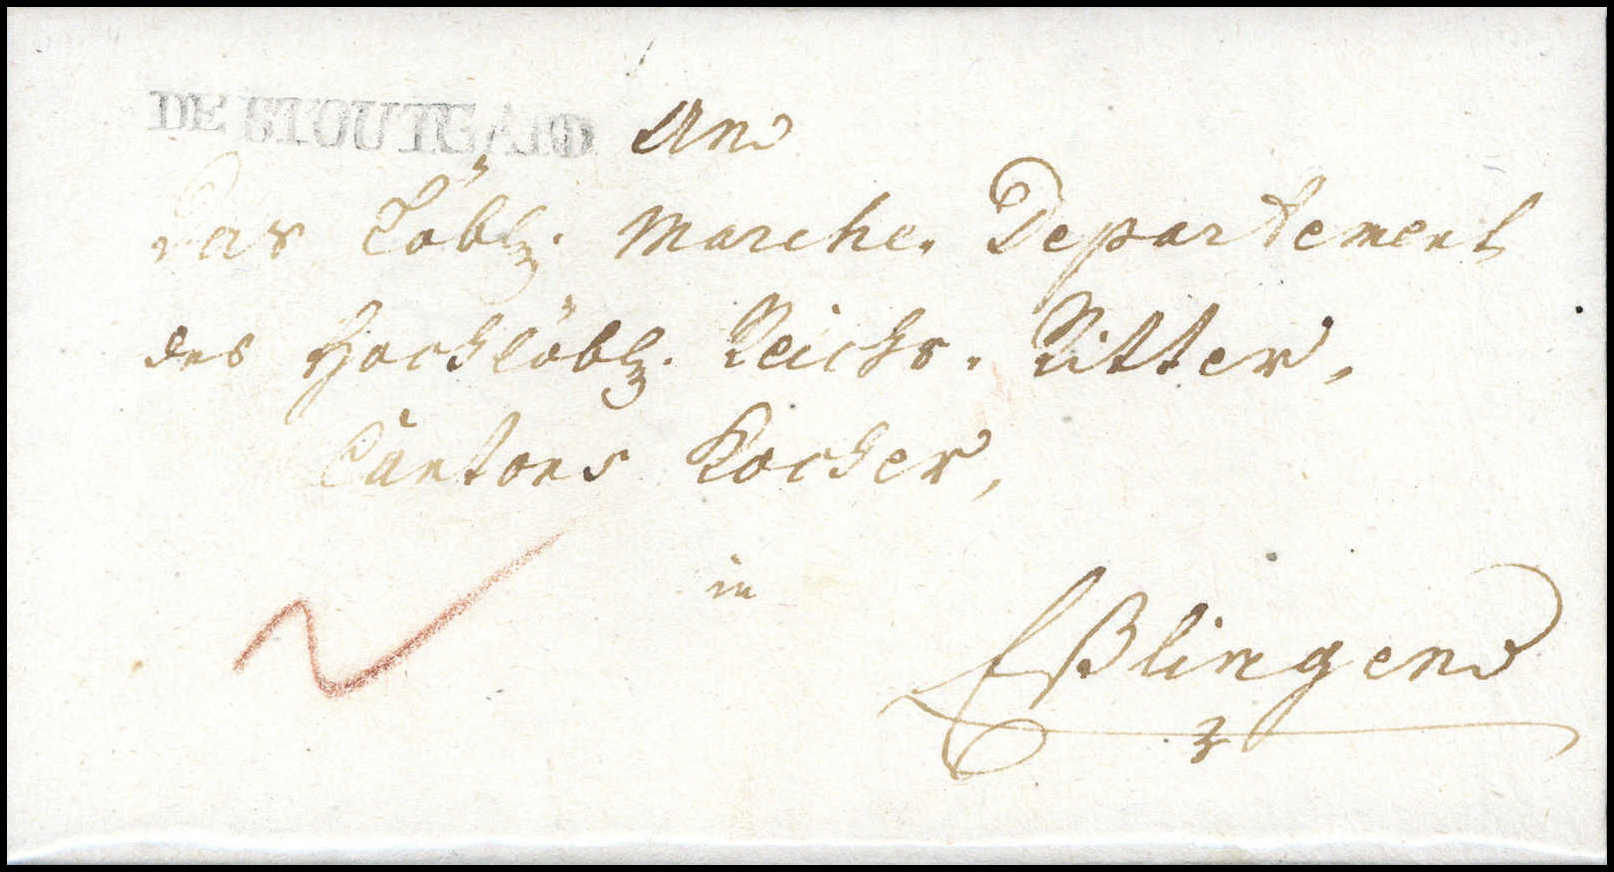 DE STOUTGARD
An
Das Löbl. Marche. Departement
des Hochlöbl. Reichs. Ritter,
Cantons Kocher,
in
Eßlingen